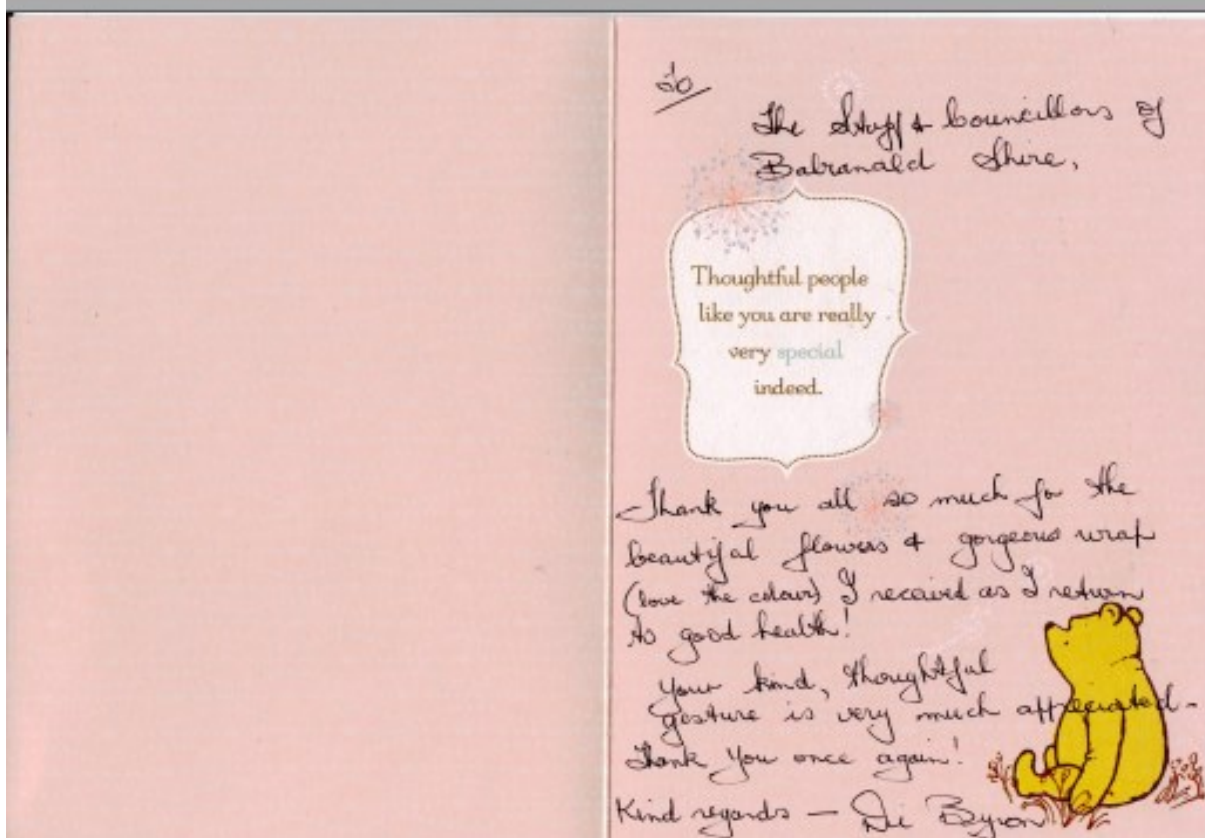 To
The Staff & Councillors of
Balranald Shire,
Thoughtful people
like you are really
very special
indeed.
Thank you all so much for the
beautiful flowers & gorgeous wrap
(love the colour) I received as I return
to good health!
Your kind, thoughtful
gesture is very much appreciated -
Thank You once again!
Kind regards — Di Byron